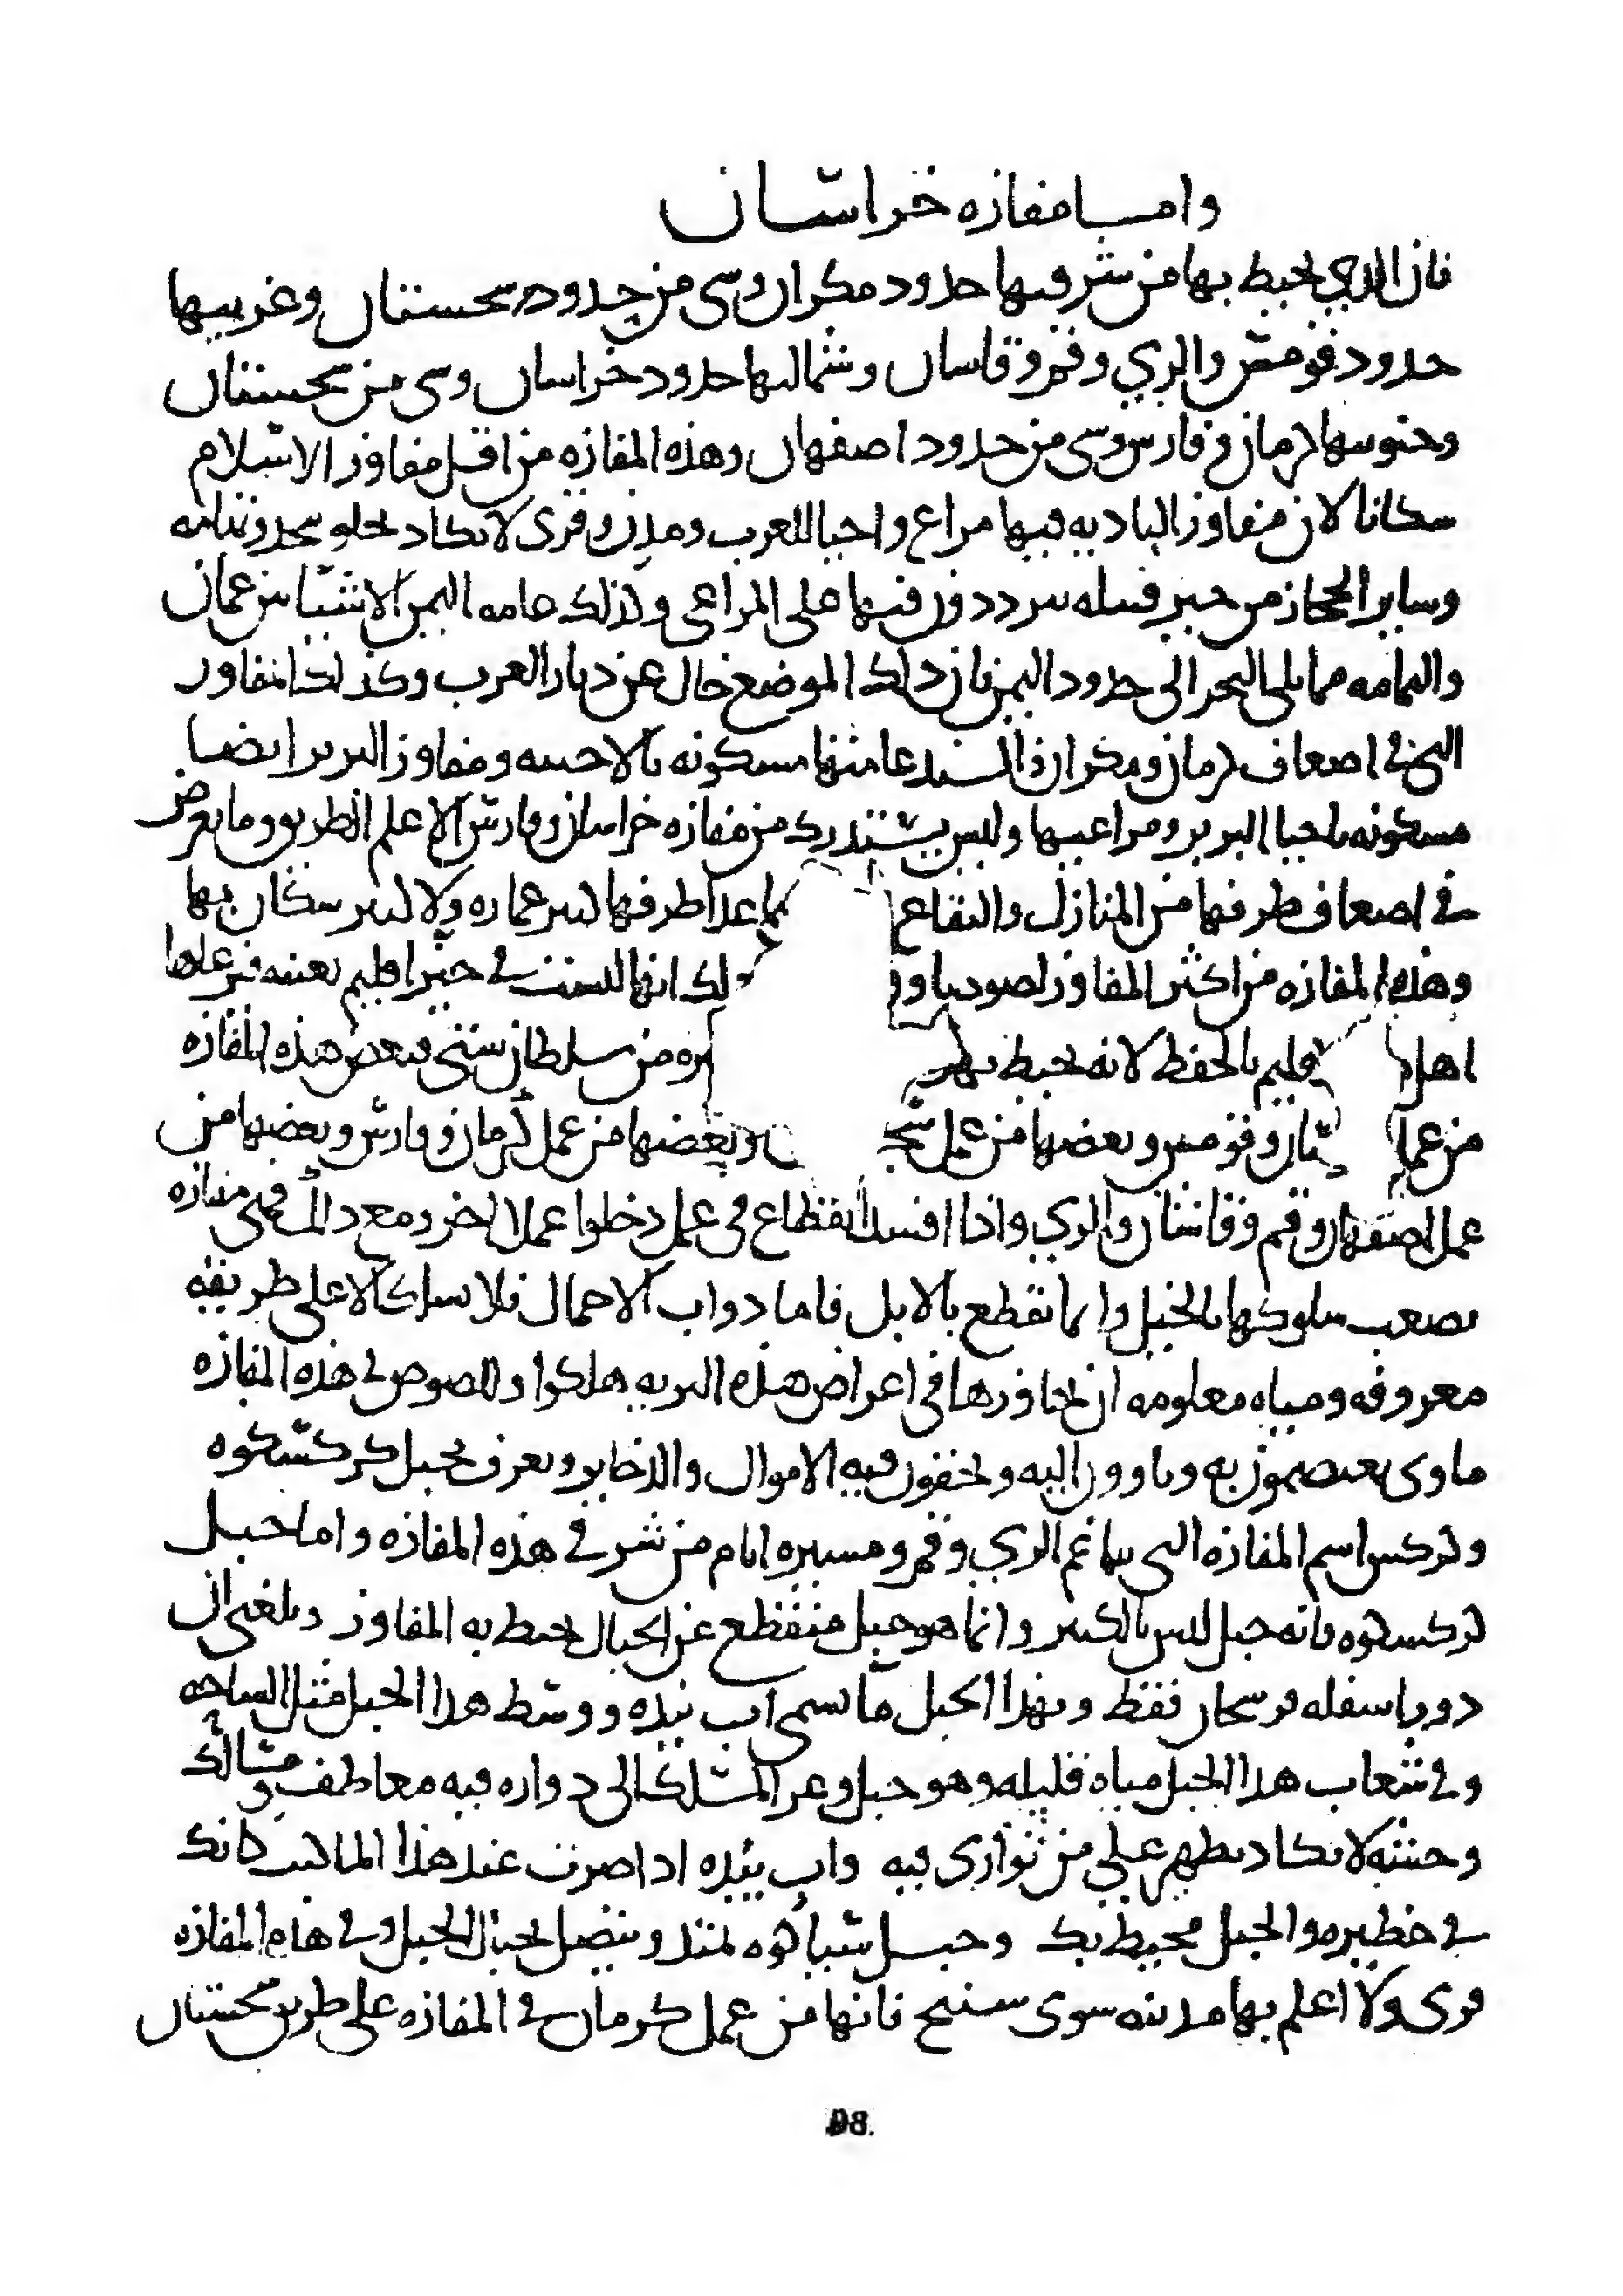 واما مفازه خراسان
فان الذي يحيط بها من شرقيها حدود مكران وشي من حدود سجستان وغربيها
حدود قومس والري وقم وقاسان وشماليها حدود خراسان وشي من سجستان
وجنوبيها كرمان وفارس وشي من حدود اصفهان وهذه المفازه من اقل مفاوز الاسلام
سكانا لان مفاوز الباديه فيها مراع واحيا للعرب ومدن وقرى لا تكاد تخلو نجد وتهامه
وساير الحجاز من حيز قبيله يترددون فيها على المراعي وكذلك عامه اليمن الا شيا بين عمان
واليمامه مما يلي البحر الى حدود اليمن فان ذلك الموضع خال عن ديار العرب وكذلك المفاوز
التي في اضعاف كرمان ومكران والسند عامتها مسكونه بالاخبيه ومفاوز البربر ايضا
مسكونه باحيا البربر ومراعيها وليس يستدرك من مفازه خراسان وفارس الا علم الطريق وما يعرض
في اضعاف طرفها من المنازل والبقاع فما عدا طرفها ليس عماره ولا ليس سكان بها
وهذه المفازه من اكثر المفاوز لصوصا و لك انها ليست في حيز اقليم بعينه فيرعاها
اهل قليم بالحفظ لانه يحيط بهذه يره من سلطان شتى فبعض هذه المفازه
من عمل سان وقومس وبعضها من عمل سج ن وبعضها من عمل كرمان وفارس وبعضها من
عمل اصفهان وقم وقاشان والري واذا افسد القطاع في عمل دخلوا عملا اخر ومع ذلك فهي مفازه
يصعب سلوكها بالخيل وانما تقطع بالابل فاما دواب الاحمال فلا تسلك الا على طريقه
معروفه ومياه معلومه ان تجاوزها في اعراض هذه البريه هلكوا وللصوص في هذه المفازه
ماوى يعتصمون به وياوون اليه ويخفون فيه الاموال والذخاير ويعرف بجبل كركسكوه
وكركس اسم المفازه التي يتاخم الري وقم ومسيره ايام من شرقي هذه المفازه واما جبل
كركسكوه فانه جبل ليس بالكبير وانما هو جبل منقطع عن الجبال يحيط به المفاوز وبلغني ان
دور باسفله فرسخان فقط وبهذا الجبل ما يسمى اب بنده ووسط هذا الجبل مثل الساحه
وفي شعاب هذا الجبل مياه قليله وهو جبل وعر المسلك الى دواره فيه معاطف ومسالك
وخشنه لا يكاد يظهر على من توارى فيه واب بنده اذا صرت عند هذا الما كنت كانك
في حظيره والجبل محيط بك وجبل سياكوه يمتد ويتصل بجبال الجبل وفي هذه المفازه
قرى ولا اعلم بها مدينه سوى سنيج فانها من عمل كرمان في المفازه على طريق سجستان
98.